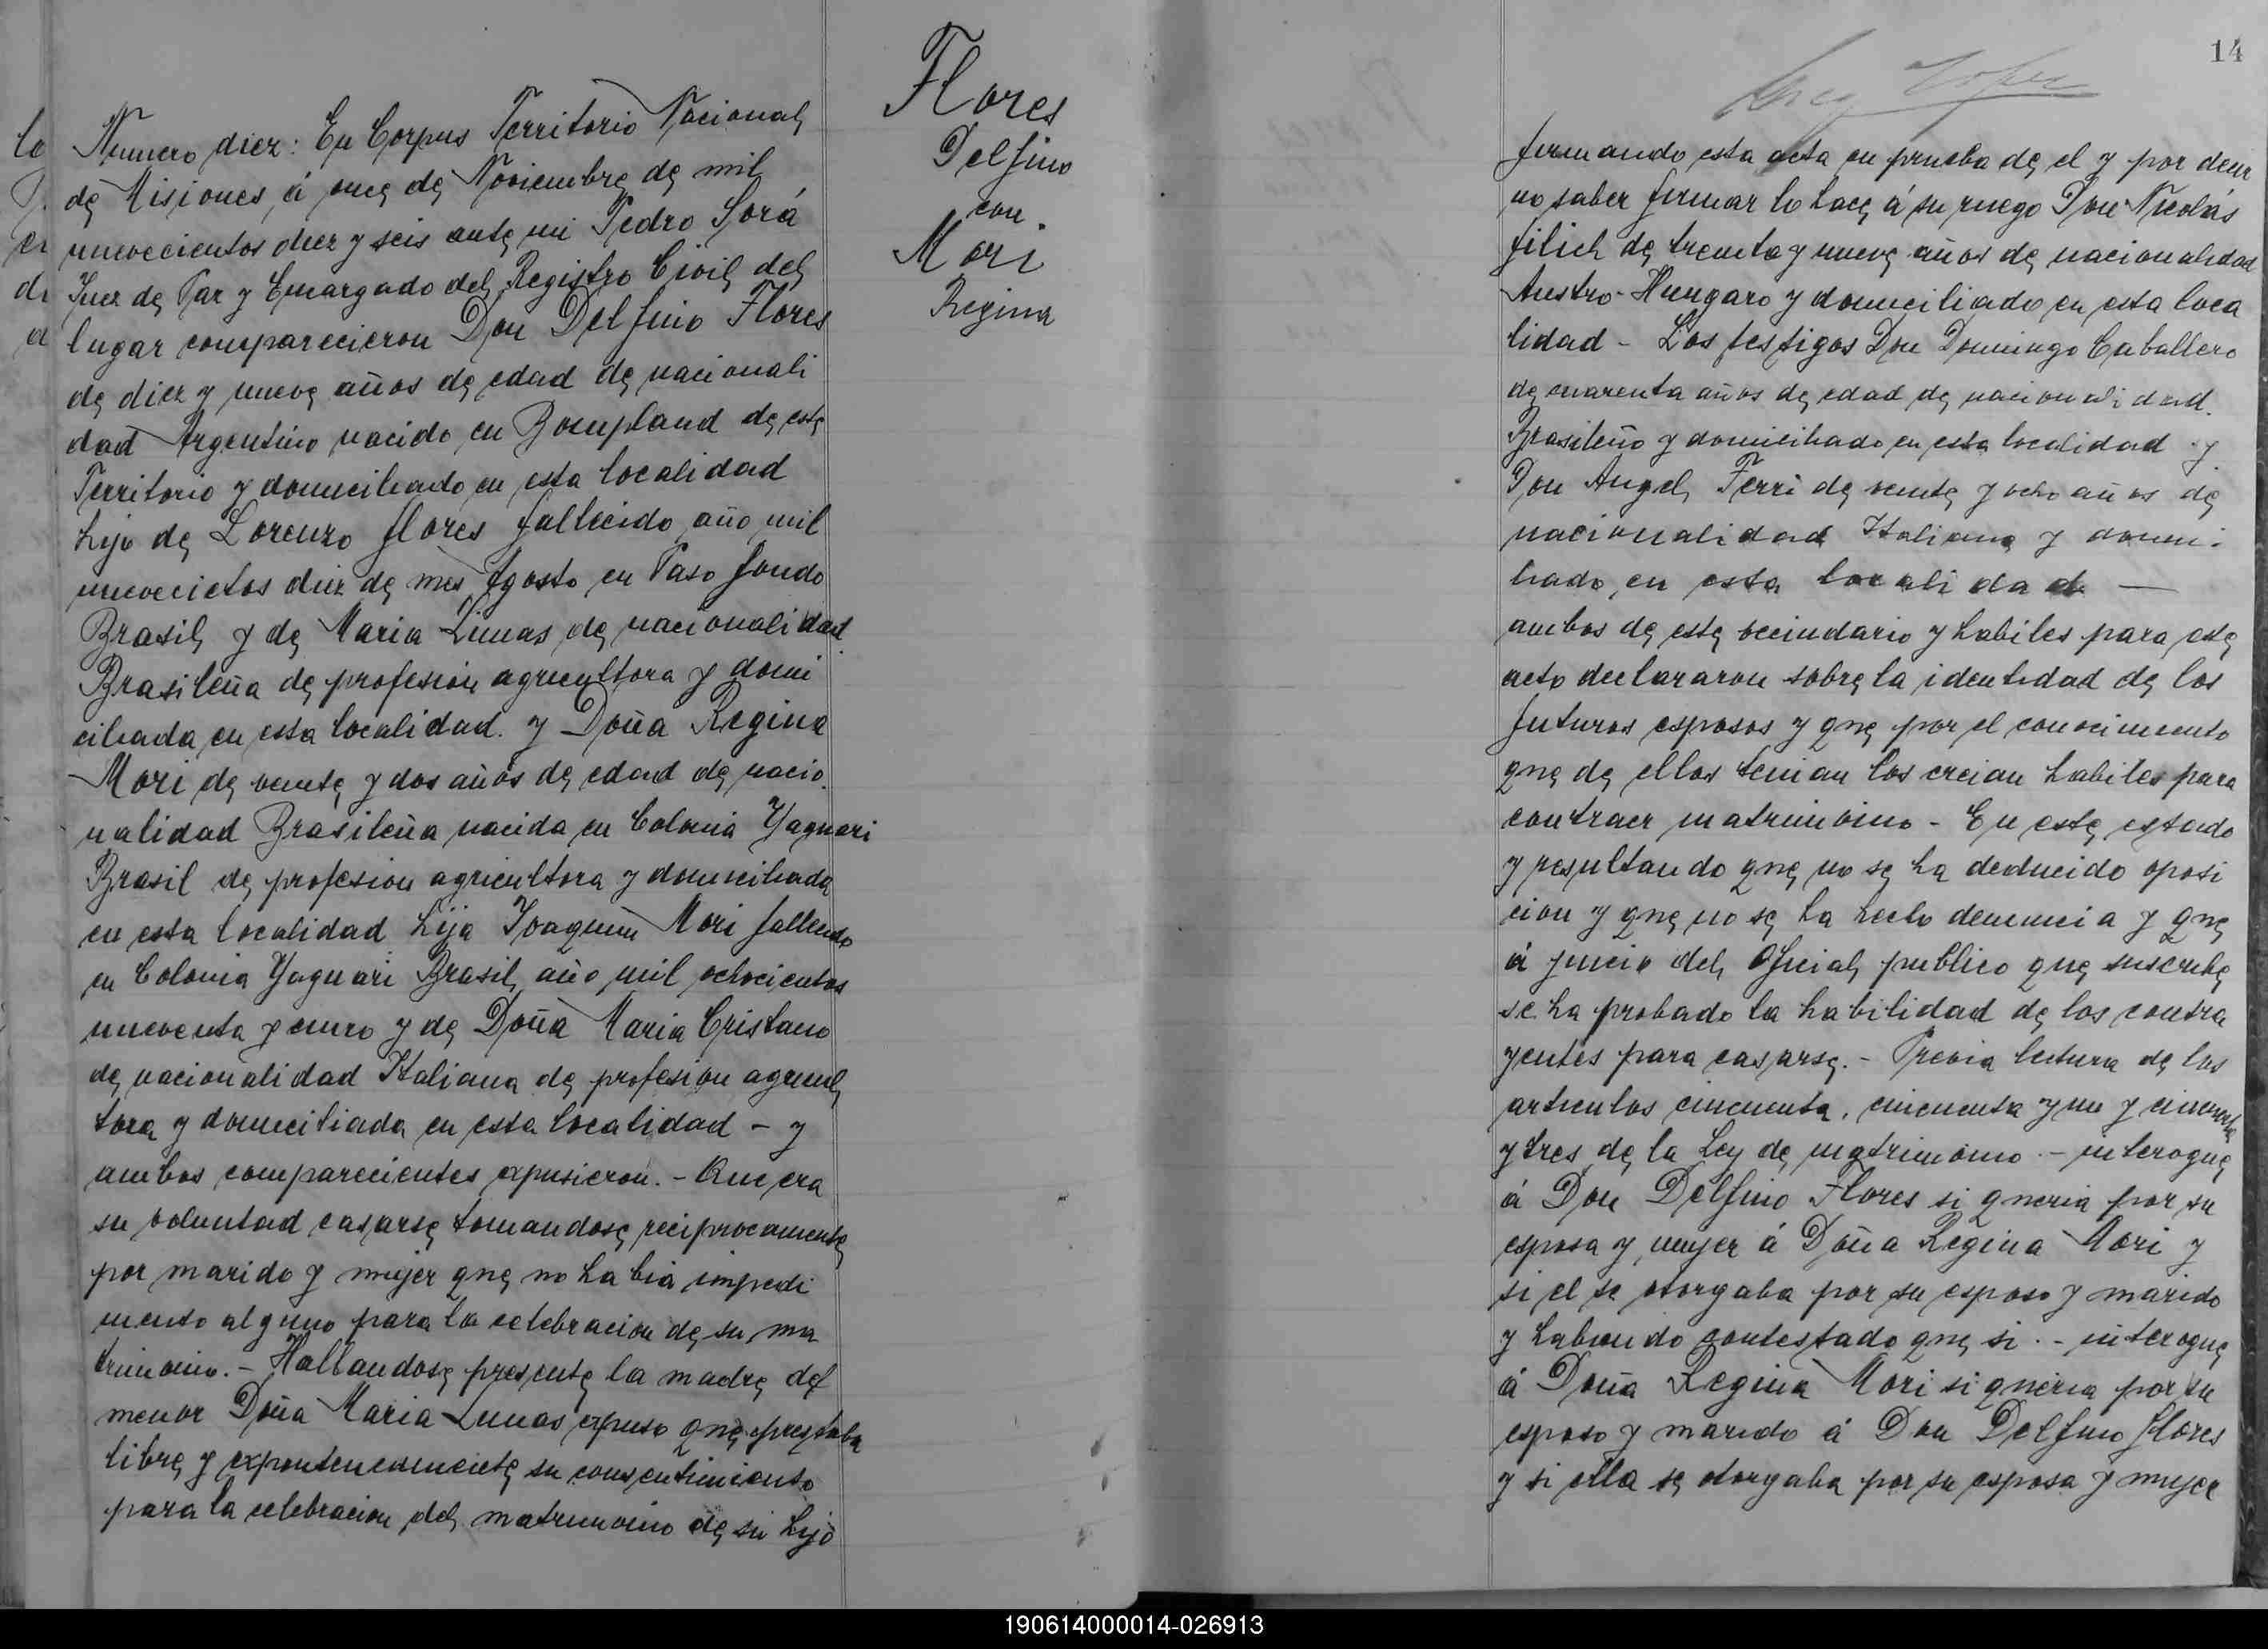 Numero diez: En Corpus Territorio Nacional
de Misiones, á once de Noviembre de mil
nuevecientos diez y seis ante mi Pedro Sorá
Juez de Paz y Encargado del Registro Civil del
lugar comparecieron Don Delfino Flores
de diez y nueve años de edad de nacionali
dad Argentino nacido en Bompland de este
Territorio y domiciliado en esta localidad
hijo de Lorenzo flores fallecido año mil
nuevecietos diez de mes Agosto en Paso fondo
Brasil y de Maria Limas de nacionalidad
Brasileña de profesión agricultora y domi
ciliada en esta localidad. y Doña Regina
Mori de veinte y dos años de edad de nacio
nalidad Brasileña nacida en Colonia Yaguari
Brasil de profesion agricultora y domiciliada
en esta localidad hija Joaquin Mori fallecido
en Colonia Yaguari Brasil año mil ochocientos
nueventa y cinco y de Doña Maria Cristano
de nacionalidad Italiana de profesion agricul
tora y domiciliada en esta localidad - y
ambos comparecientes expusieron. - Que era
su voluntad casarse tomandose reciprocamente
por marido y mujer que no habia impedi
mento alguno para la celebracion de su ma
trimonio. - Hallandose presente la madre del
menor Doña Maria Limas expuso que prestaba
libre y exponteneamciete su consentimiento
para la celebracion del matrimonio de su hijo
Flores
Delfino
con
Mori
Regina
14
firmando esta acta en prueba de el y por decir
no saber firmar lo hace á su ruego Don Nicolás
filich de treinta y nueve años de nacionalidad
Austro-Hungaro y domiciliado en esta loca
lidad - Los testigos Don Domingo Caballero
de cuarenta años de edad de nacionalidad
Brasileño y domiciliado en esta localidad y
Don Angel Ferri de veinte y ocho años de
nacionalidad Italiana y domi-
liado en esta localidad —
ambos de este vecindario y habiles para este
acto declararon sobre la identidad de los
futuros esposos y que por el conocimiento
que de ellos tenian los creian habiles para
contraer matrimonio - En este estado
y resultando que no se ha deducido oposi
cion y que no se ha hecho denuncia y que
á juicio del Oficial publico que suscribe
se ha probado la habilidad de los contra
yentes para casarse. - Previa lectura de los
articulos cincuenta, cincuenta y un y cincuenta
y tres de la Ley de matrimonio - interogue
á Don Delfino Flores si queria por su
esposa y mujer á Doña Regina Mori y
si el se otorgaba por su esposo y marido
y habiendo contestado que si. - interogue
á Doña Regina Mori si queria por su
esposo y marido á Don Delfino flores
y si ella se otorgaba por su esposa y mujer
190614000014-026913